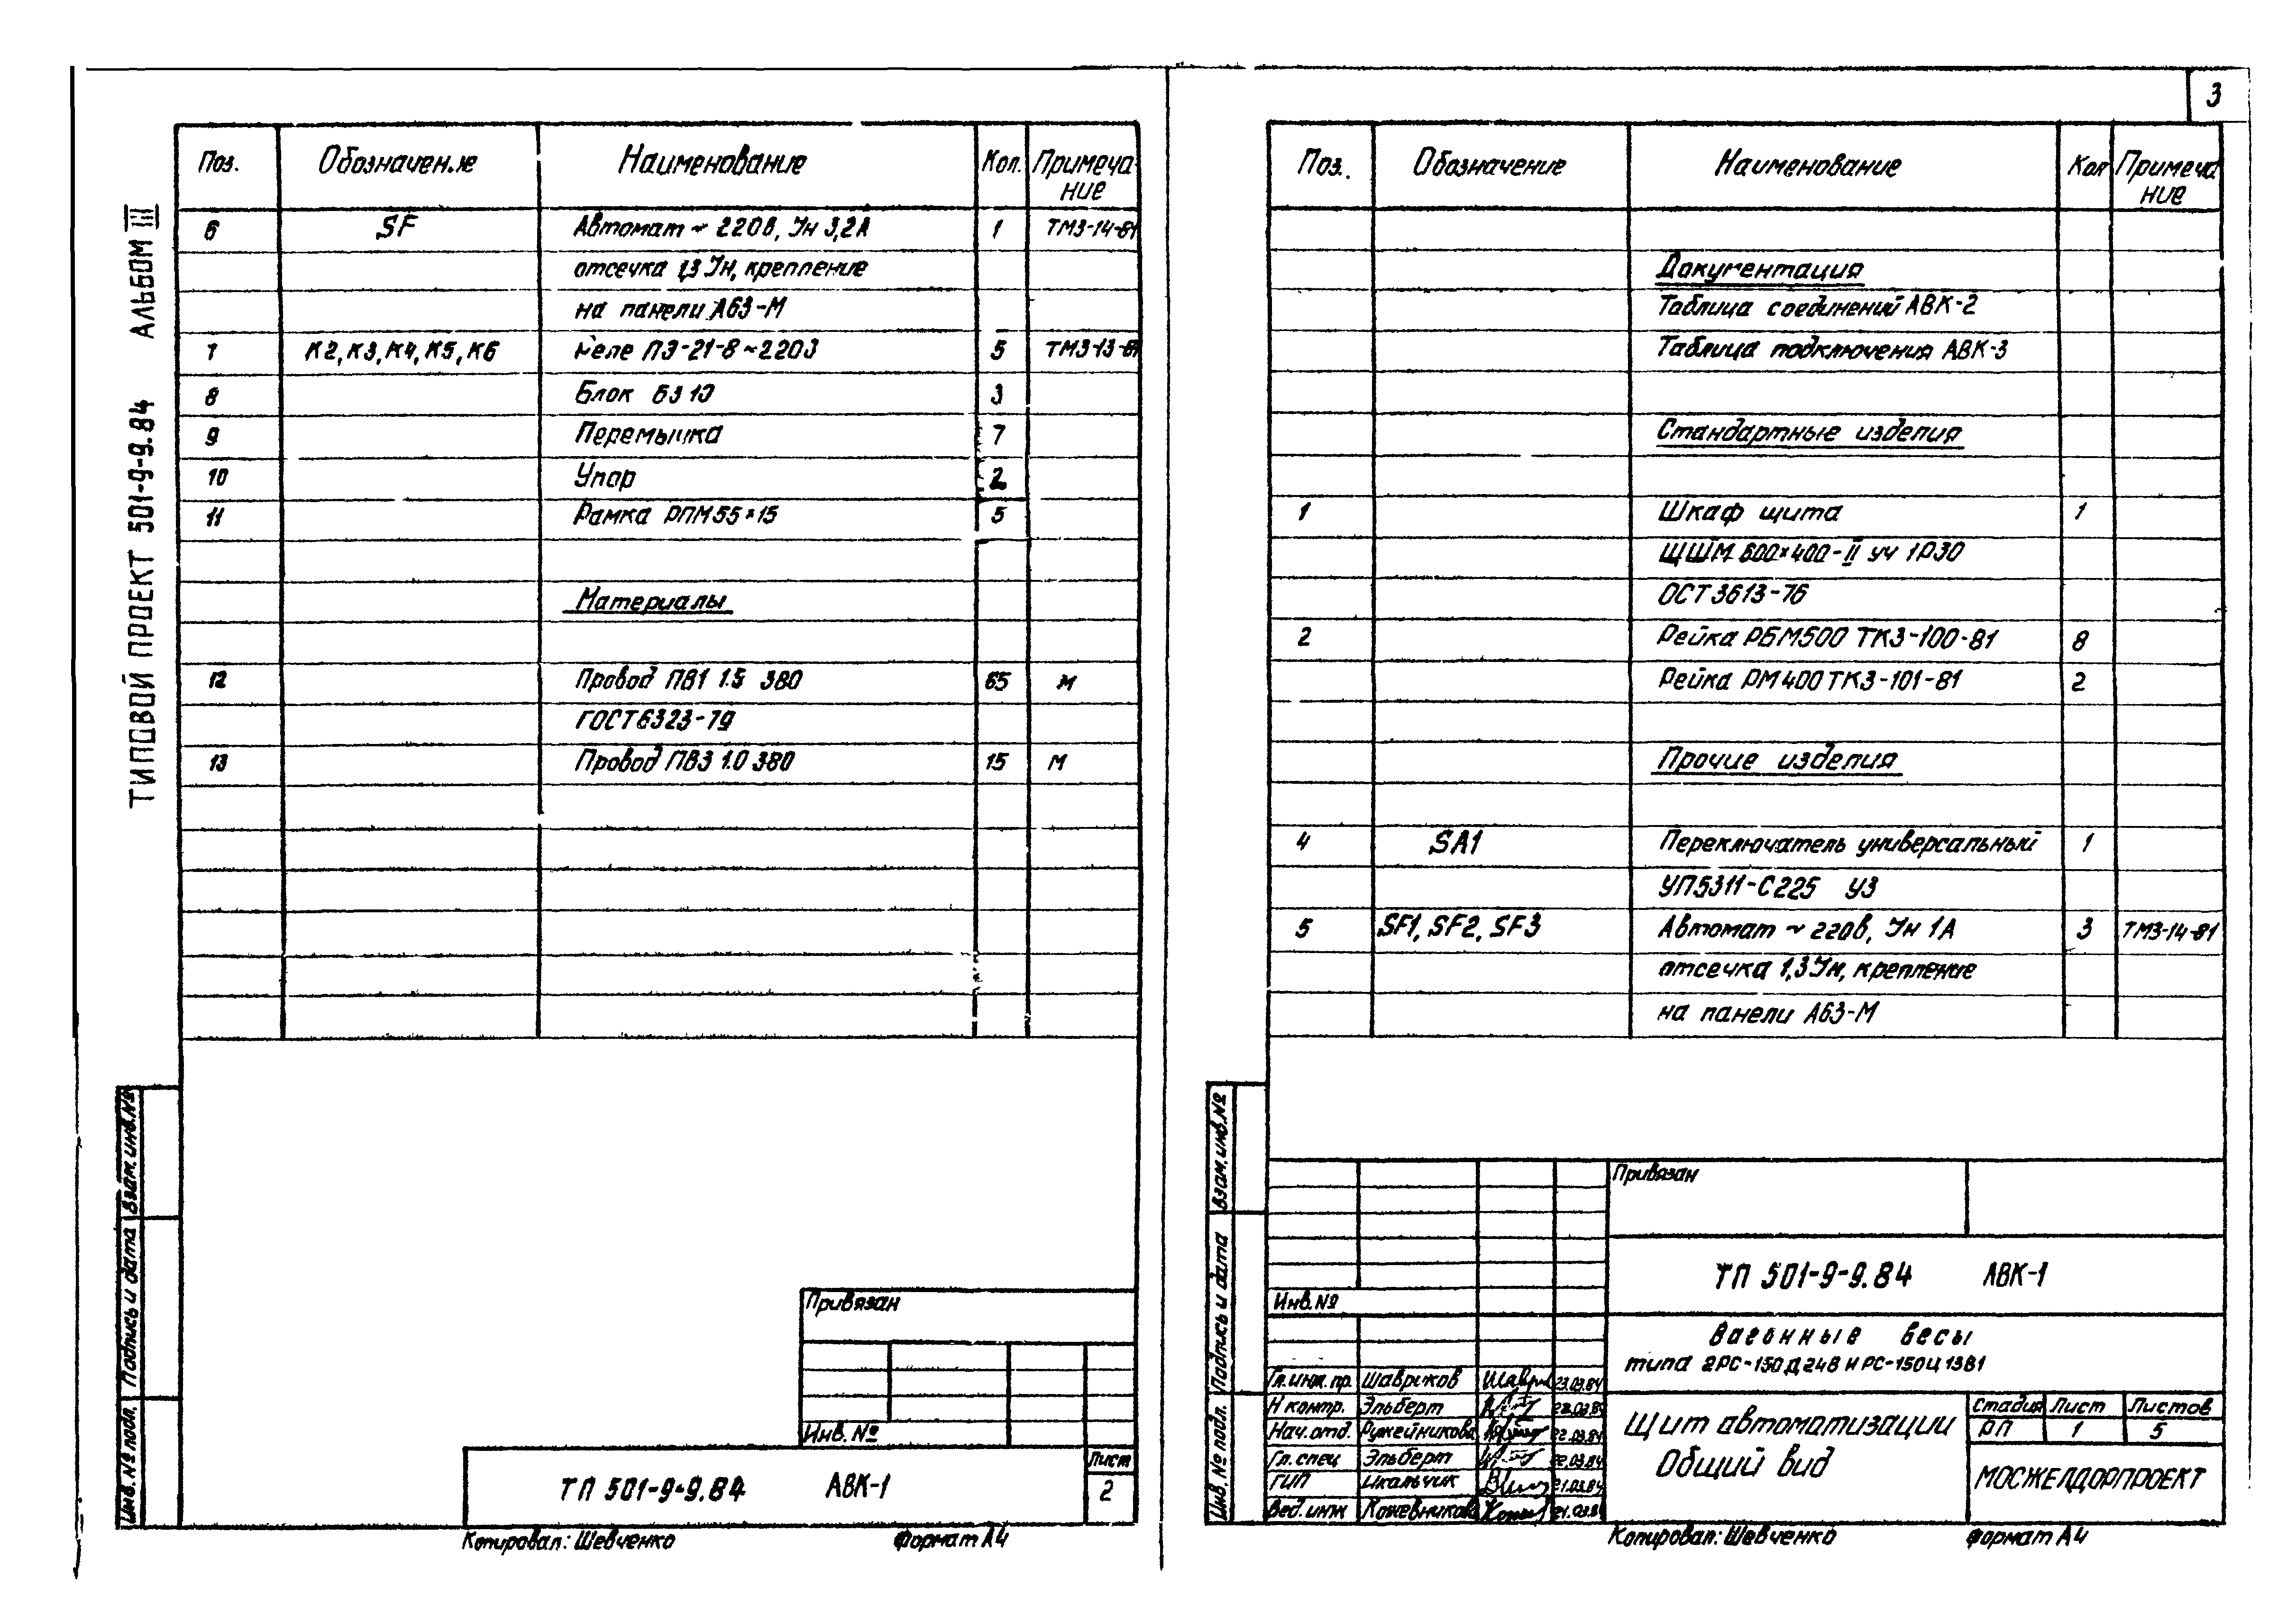 3
ТИПОВОЙ ПРОЕКТ 501-9-9.84 АЛЬБОМ III
Поз. Обозначение Наименование Кол. Примеча-
ние
6 SF Автомат ~ 220в, Iн 3,2А 1 ТМ3-14-81
отсечка 1,3 Iн, крепление
на панели А63-М
7 К2, К3, К4, К5, К6 Реле ПЭ-21-8 ~220 5 ТМ3-13-81
8 Блок БЗ 10 3
9 Перемычка 7
10 Упор 2
11 Рамка РПМ 55×15 5
Материалы
12 Провод ПВ1 1.5 380 65 м
ГОСТ 6323-79
13 Провод ПВ3 1.0 380 15 м
Взам. инв. №
Подпись и дата
Инв. № подл.
Привязан
Инв. №
ТП 501-9-9.84 АВК-1
Лист
2
Копировал: Шевченко Формат А4
Поз. Обозначение Наименование Кол Примеча
ние
Документация
Таблица соединений АВК-2
Таблица подключения АВК-3
Стандартные изделия
1 Шкаф щита 1
ЩШМ 600×400-II УЧ IP30
ОСТ 3613-76
2 Рейка РБМ500 ТК3-100-81 8
Рейка РМ400 ТК3-101-81 2
Прочие изделия
4 SA1 Переключатель универсальный 1
УП5311-С225 У3
5 SF1, SF2, SF3 Автомат ~ 220в, Iн 1А 3 ТМ3-14-81
отсечка 1,3 Iн, крепление
на панели А63-М
Взам. инв. №
Подпись и дата
Инв. № подл.
Привязан
ТП 501-9-9.84 АВК-1
Инв. №
Вагонные весы
типа 2РС-150Д24В и РС-150Ц13В1
Гл. инж. пр. Шавриков 23.03.84
Н контр. Эльберт 22.03.84
Нач. отд. Ружейникова 22.03.84
Гл. спец Эльберт 22.03.84
ГИП Шкальчик 21.03.84
Вед. инж Кожевникова 21.03.84
Щит автоматизации
Общий вид
Стадия Лист Листов
РП 1 5
МОСЖЕЛДОРПРОЕКТ
Копировал: Шевченко Формат А4